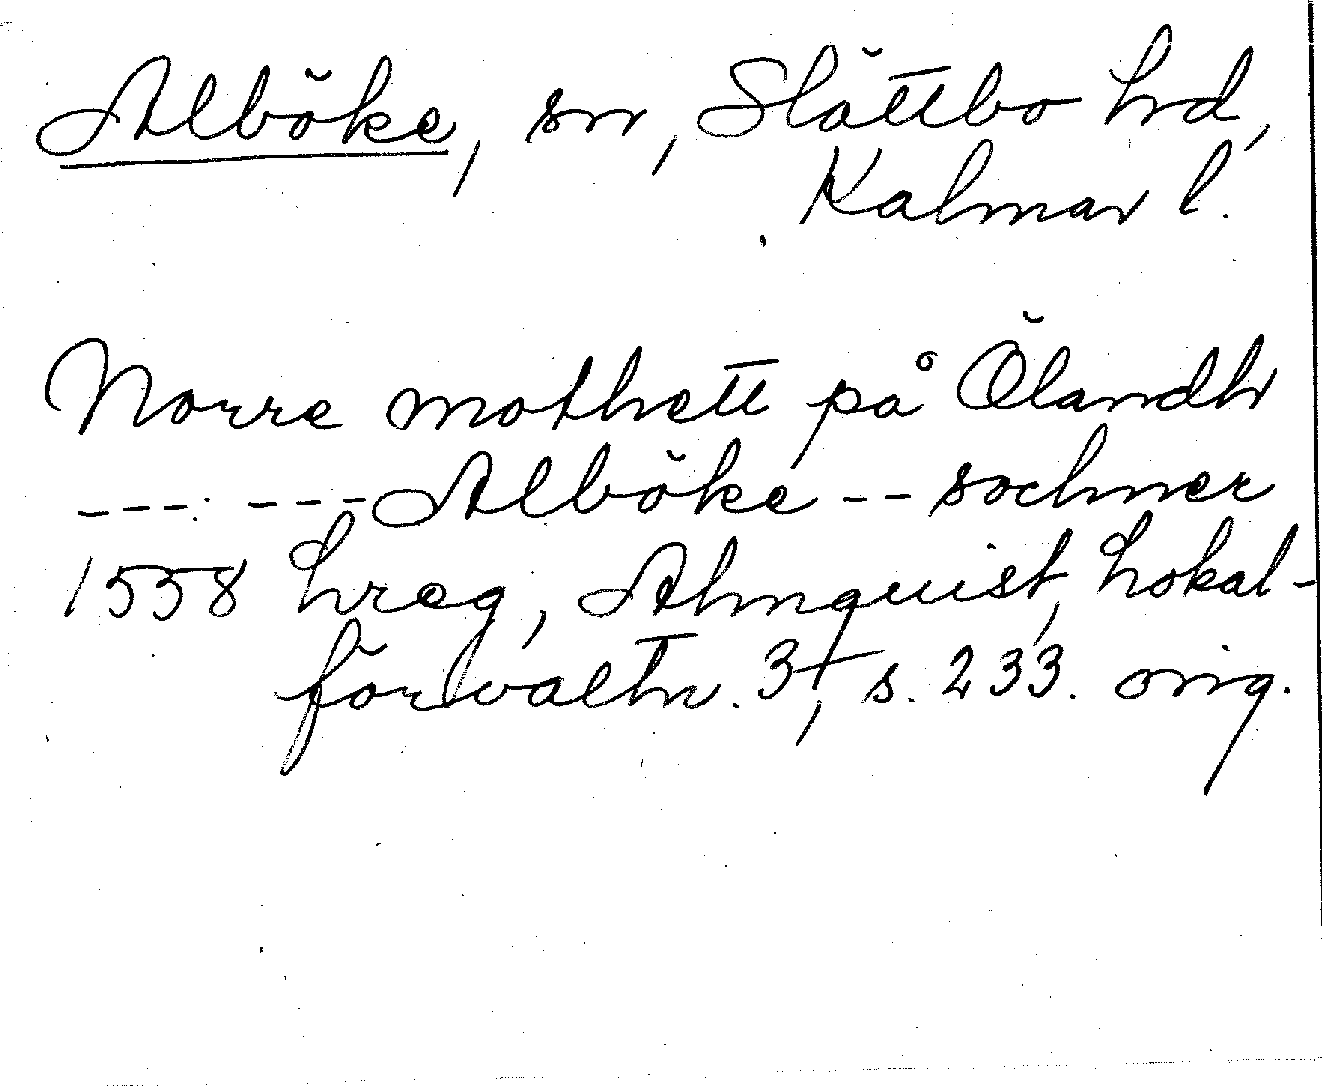 Alböke, sn, Slättbo hd,
Kalmar l.
Norre mothett på Ölandh
---: --- Alböke -- sochner
1558 hreg, Almquist, Lokal-
förvaltn. 3, s. 233. orig.